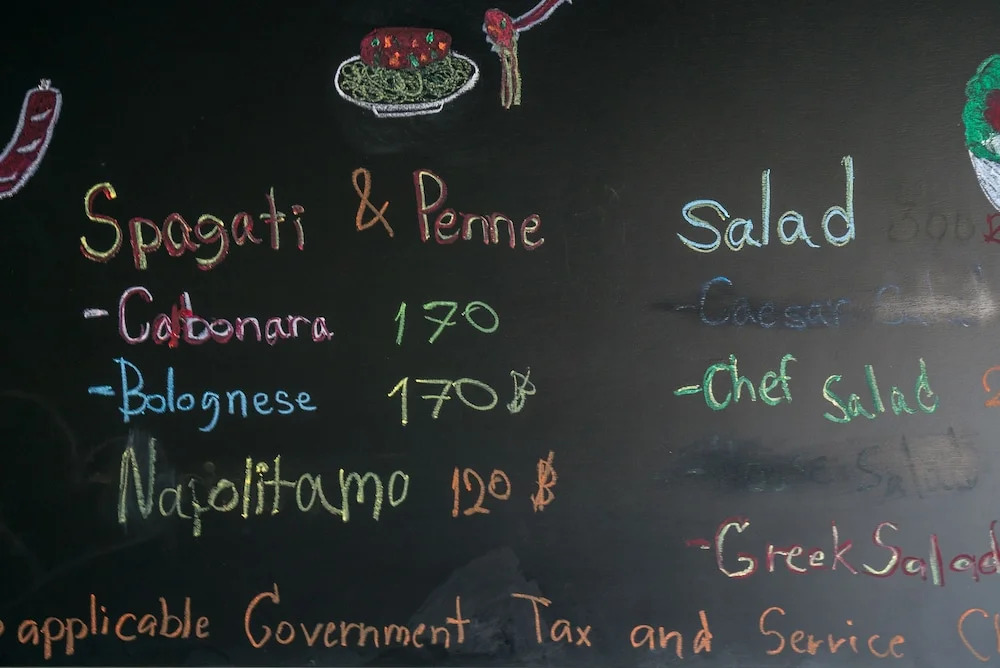 Spagati & Penne
- Carbonara 170
- Bolognese 170 ฿
Napolitamo 120 ฿
Salad
- Caesar
- Chef Salad
Salad
- Greek Salad
applicable Government Tax and Service